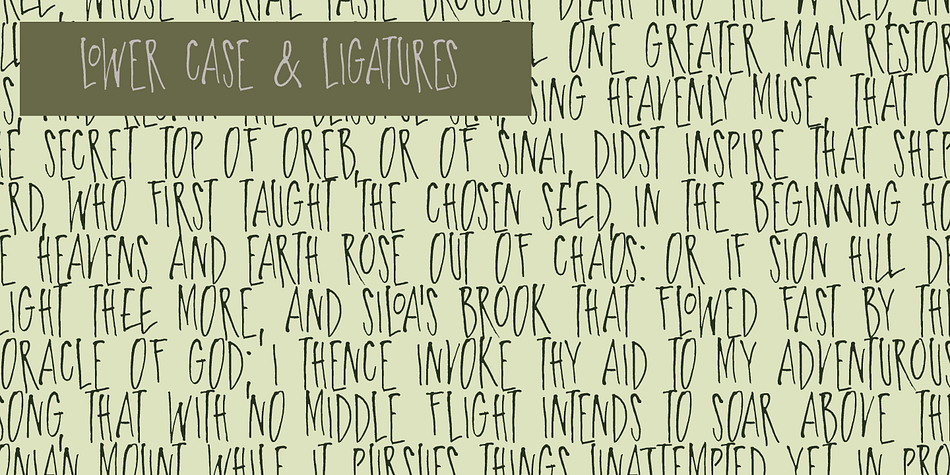 LOWER CASE & LIGATURES
WHOSE MORTAL TASTE BROUGHT DEATH INTO THE WORLD, AND
ONE GREATER MAN RESTOR
AND REGAIN THE BLISSFUL SEAT, SING HEAVENLY MUSE, THAT O
E SECRET TOP OF OREB, OR OF SINAI, DIDST INSPIRE THAT SHEP
ERD, WHO FIRST TAUGHT THE CHOSEN SEED, IN THE BEGINNING H
E HEAVENS AND EARTH ROSE OUT OF CHAOS: OR IF SION HILL DE
IGHT THEE MORE, AND SILOA'S BROOK THAT FLOWED FAST BY TH
ORACLE OF GOD; I THENCE INVOKE THY AID TO MY ADVENTUROUS
SONG, THAT WITH NO MIDDLE FLIGHT INTENDS TO SOAR ABOVE TH
ONIAN MOUNT WHILE IT PURSUES THINGS UNATTEMPTED YET IN PRO